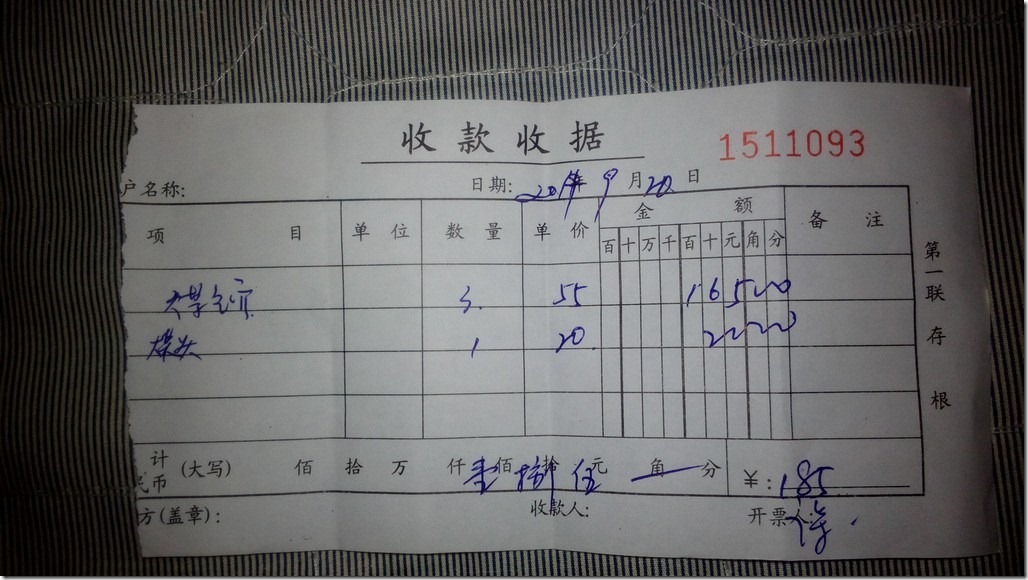 收款收据
1511093
户名称:
日期: 201 年 9 月 20 日
项目 单位 数量 单价 金额 备注
百 十 万 千 百 十 元 角 分
3 55 1 6 5 0 0
1 20 2 0 0 0
计 (大写) 佰 拾 万 仟 壹 佰 捌 拾 伍 元 角 分 ¥: 185
民币
方(盖章): 收款人: 开票人:
第一联 存根